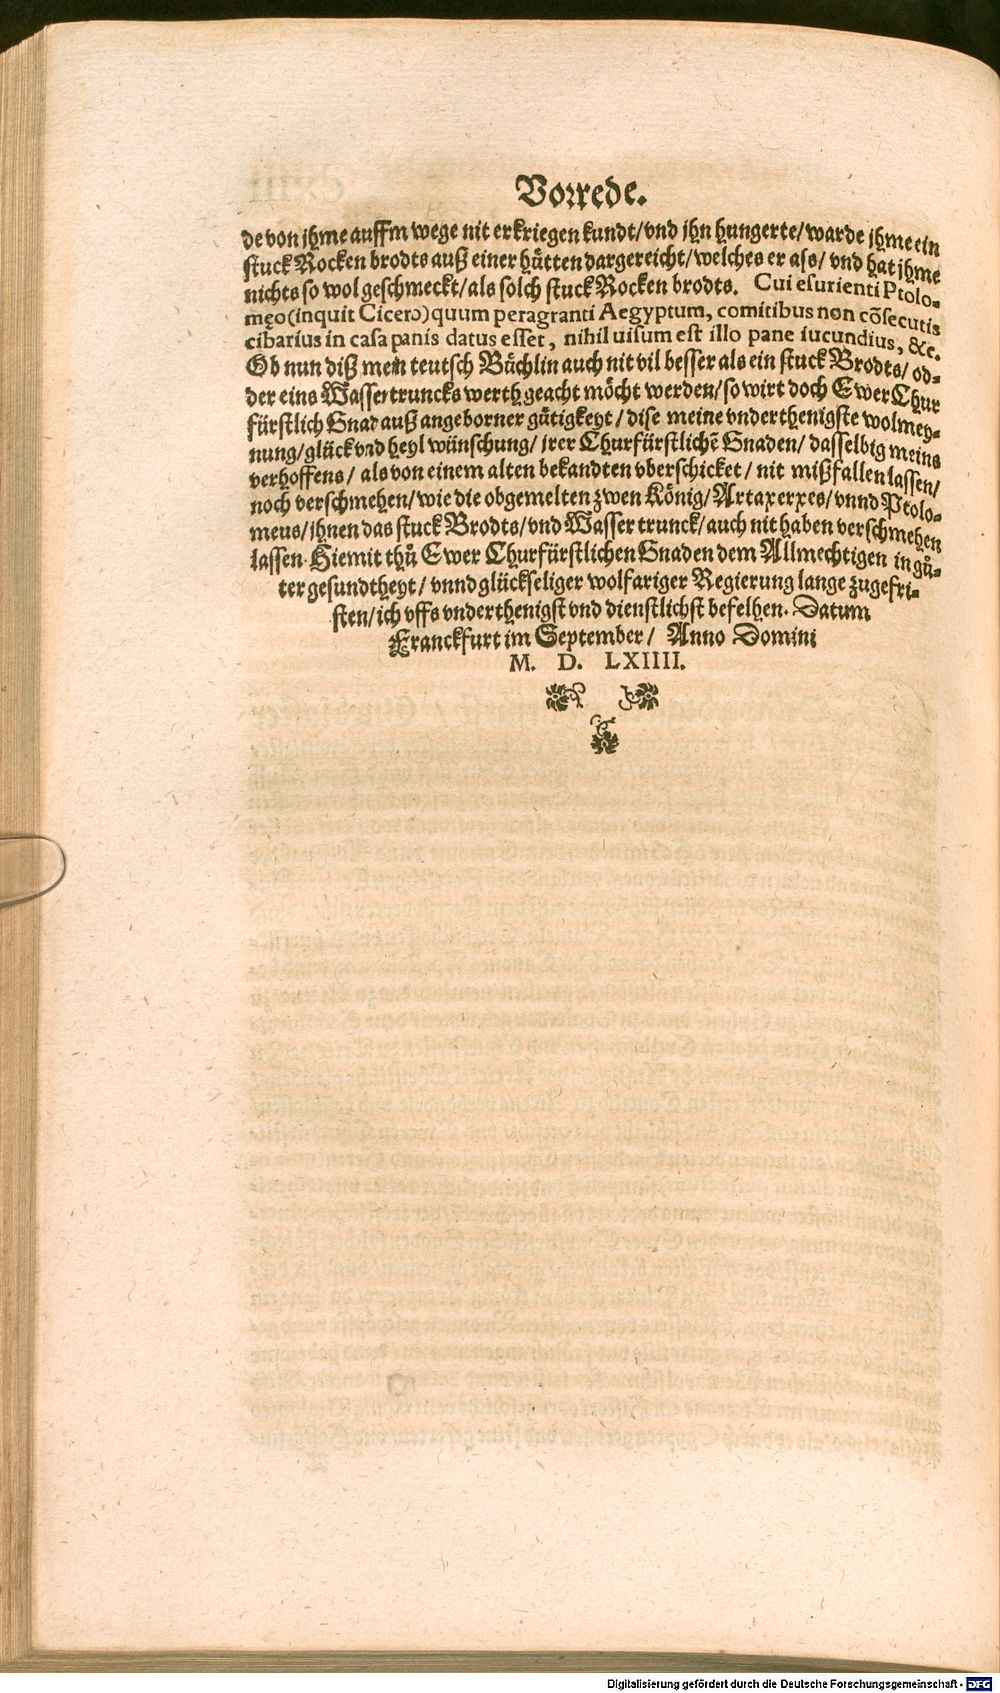 Vorrede.
de von jhme auffm wege nit erkriegen kundt/vnd jhn hungerte/warde jhme ein
stuck Rocken brodts auß einer hütten dargereicht/welches er ass/ vnd hat jhme
nichts so wol geschmeckt/als solch stuck Rocken brodts. Cui esurienti Ptolo-
męo (inquit Cicero) quum peragranti Aegyptum, comitibus non cõsecutis
cibarius in casa panis datus esset, nihil uisum est illo pane iucundius, &c.
Ob nun diß mein teutsch Büchlin auch nit vil besser als ein stuck Brodts/ od-
der eins Wassertruncks werth geacht möcht werden/so wirt doch Ewer Chur
fürstlich Gnad auß angeborner gütigkeyt/ dise meine vnderthenigste wolmey-
nung/glück vnd heyl wünschung/ jrer Churfürstlichẽ Gnaden/ dasselbig meins
verhoffens/ als von einem alten bekandten vberschicket/ nit mißfallen lassen/
noch verschmehen/wie die obgemelten zwen König/Artaxerxes/vnnd Ptolo-
meus/jhnen das stuck Brodts/vnd Wasser trunck/auch nit haben verschmehen
lassen. Hiemit thů Ewer Churfürstlichen Gnaden dem Allmechtigen in gů-
ter gesundtheyt/ vnnd glückseliger wolfariger Regierung lange zugefri-
sten/ich vffs vnderthenigst vnd dienstlichst befelhen. Datum
Franckfurt im September/ Anno Domini
M. D. LXIIII.
Digitalisierung gefördert durch die Deutsche Forschungsgemeinschaft - DFG